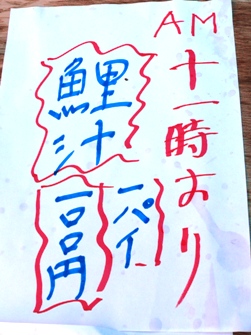 AM
十一時より
鯉汁
一パイ
一〇〇円